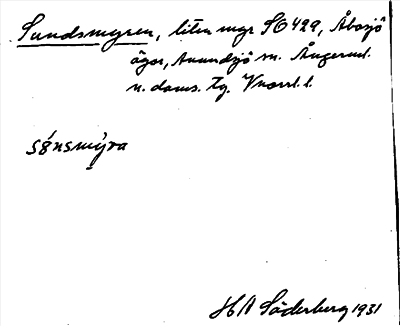 Sundsmyren, liten myr SO 429, Åbosjö
ägor, Anundsjö sn. Ångerml.
n. doms. Tg. Vnorrl. l.
sǿnsmy̆ra
H A Söderberg 1931